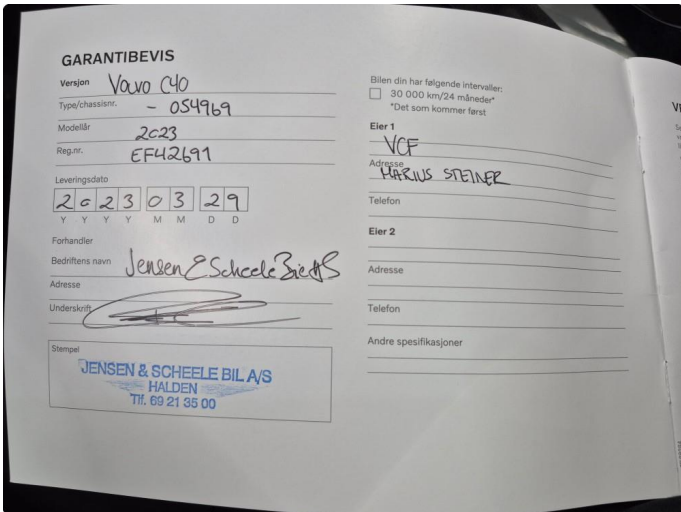 GARANTIBEVIS
Versjon Volvo C40
Type/chassisnr. - 054969
Modellår 2023
Reg.nr. EF42691
Leveringsdato
2023 03 29
Y Y Y Y M M D D
Forhandler
Bedriftens navn Jensen & Scheele Bil A/S
Adresse
Underskrift
Stempel
JENSEN & SCHEELE BIL A/S
HALDEN
Tlf. 69 21 35 00
Bilen din har følgende intervaller:
30 000 km/24 måneder*
*Det som kommer først
Eier 1
VCF
Adresse
MARIUS STEINER
Telefon
Eier 2
Adresse
Telefon
Andre spesifikasjoner